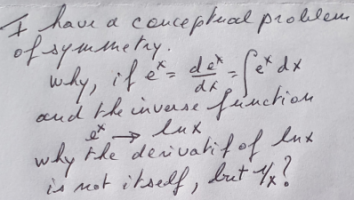 I have a conceptual problem
of symmetry.
why, if e^x = de^x/dx = ∫e^x dx
and the inverse function
e^x → lnx
why the derivatif of lnx
is not itself, but 1/x?